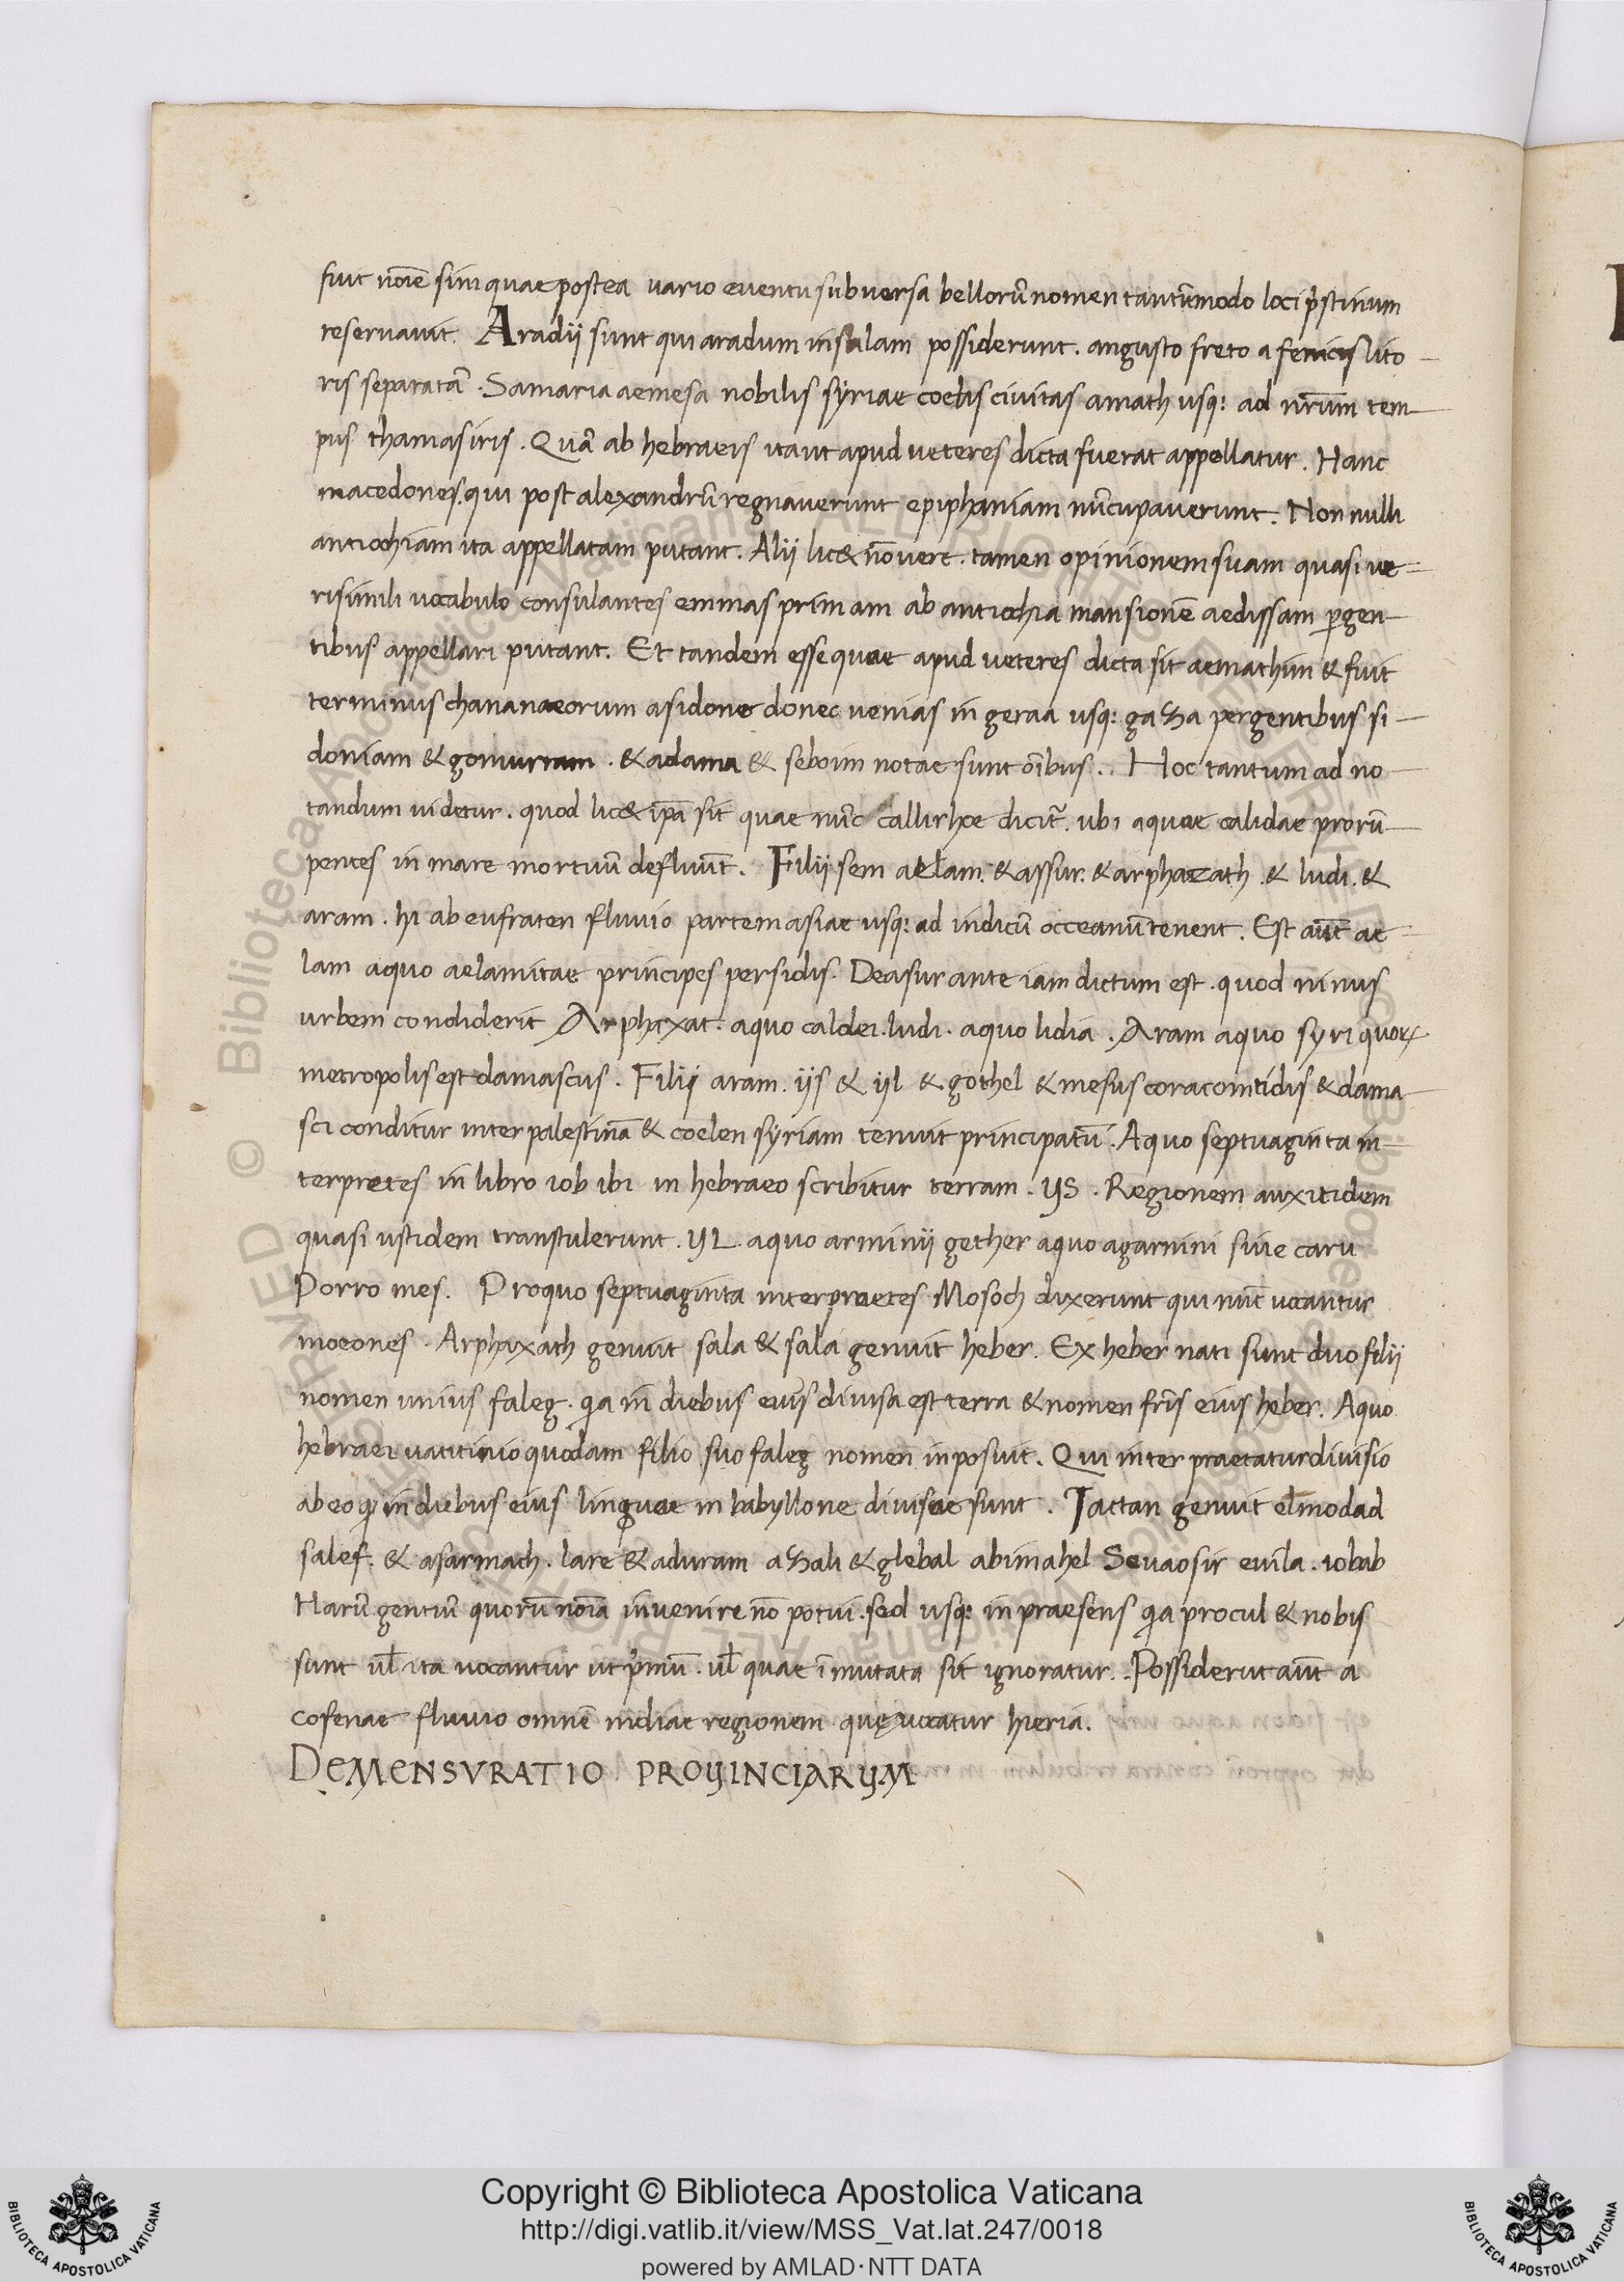 fuit noīe sim quae postea vario eventu subversa bellorū nomen tantūmodo loci p̄stinum
reservavit. Aradij sunt qui aradum insulam possiderunt. angusto freto a fenicis lito-
ris separatā. Samaria aemesa nobilis sÿriae coelis civitas amath usq: ad nr̄um tem-
pus thamasiris. Quā ab hebraeis ita ut apud veteres dicta fuerat appellatur. Hanc
macedones. qui post alexandrū regnaverunt epiphaniam nūcupaverunt. Non nulli
antiochiam ita appellatam putant. Alij lic& nō vere. tamen opinionem suam quasi ve=
risimili vocabulo consulantes emmas primam ab antiochia mansionē aedissam pgen-
tibus appellari putant. Et tandem esse quae apud veteres dicta sit aemathim & fuit
terminus chananaeorum a sidone donec venias in geraa usq: gaza pergentibus si-
doniam & gomurram. & adama & seboim notae sunt oībus.. Hoc tantum ad no-
tandum videtur. quod lic& ip̄a sit quae nūc callirhoe dicit̄. ubi aquae calidae prorū-
pentes in mare mortuū defluūt. Filij sem aelam. & assur. & arphazath. & ludi. &
aram. hi ab eufraten fluvio partem asiae usq: ad indicū occeanū tenent. Est aūt ae=
lam aquo aelamitae principes persidis. De asur ante iam dictum est. quod ninus
urbem condiderit Arphaxat. aquo caldei. ludi. aquo lidia. Aram aquo syri quoꝝ
metropolis est damascus. Filij aram. ijs & ijl & gothel & mesus coracomtidis & dama-
sci conditur inter palestinā & coelen sÿriam tenuit principatū. Aquo septuaginta in-
terpretes in libro iob ibi in hebraeo scribitur terram. YS. Regionem auxitidem
quasi ustidem transtulerunt. YL. aquo arminij gether aquo agarnini sive caru
Porro mes. Pro quo septuaginta interpraetes Mosoch dixerunt qui nūc vocantur
moeones. Arphaxath genuit sala & sala genuit heber. Ex heber nati sunt duo filij
nomen unius faleg. qia in diebus eius divisa est terra & nomen fr̄is eius heber. Aquo
hebraei vaticinio quodam filio suo faleg nomen inposuit. Qui inter praetatur divisio
ab eo qi in diebus eius linguae in babyllone divisae sunt. Iactan genuit elmodad
salef. & asarmach. lare & aduram azali & glebal abimahel Sevaosir evila. iobab
Harū gentiū quorū noīa invenire nō potui. sed usq: in praesens qia procul & nobis
sunt ul̄ ita vocantur ut p̄mū. ul̄ quae īmutata sit ignoratur. Possiderūt aūt a
cofenae fluvio omnē indiae regionem quę vocatur hieria.
DEMENSVRATIO PROVINCIARVM
Copyright © Biblioteca Apostolica Vaticana
http://digi.vatlib.it/view/MSS_Vat.lat.247/0018
powered by AMLAD·NTT DATA
BIBLIOTECA APOSTOLICA VATICANA
BIBLIOTECA APOSTOLICA VATICANA